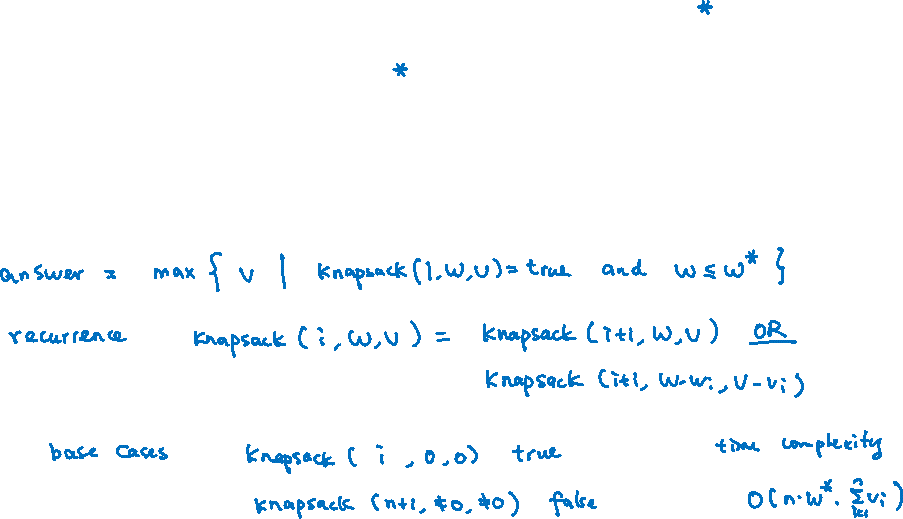 *
*
answer = max { v | knapsack(1,W,V)=true and W ≤ W* }
recurrence knapsack (i,W,V) = knapsack (i+1,W,V) OR
knapsack (i+1, W-wi, V-vi)
base cases knapsack ( i ,0,0) true time complexity
knapsack (n+1, ≠0, ≠0) false O(n·W*· Σ_{i=1}^{n} vi)